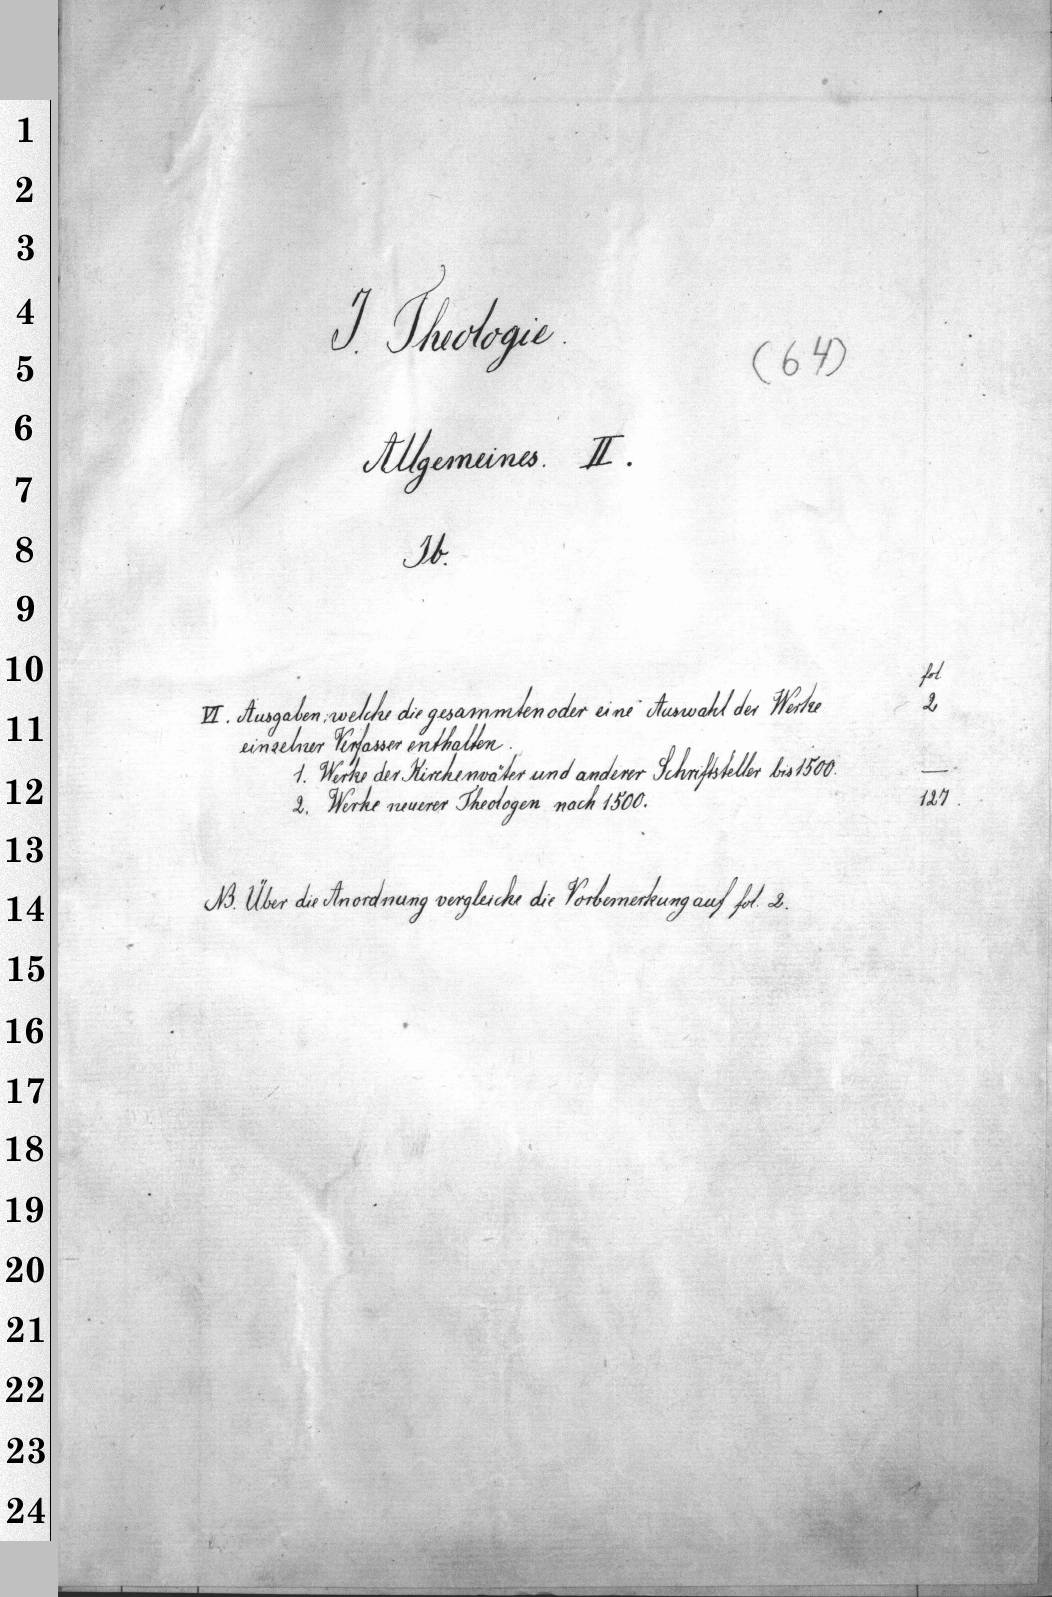 1
2
3
4
5
6
7
8
9
10
11
12
13
14
15
16
17
18
19
20
21
22
23
24
I. Theologie.
(64)
Allgemeines. II.
Ib.
fol
VI. Ausgaben, welche die gesammten oder eine Auswahl der Werke 2
einzelner Verfasser enthalten.
1. Werke der Kirchenväter und anderer Schriftsteller bis 1500. —
2. Werke neuerer Theologen nach 1500. 127.
NB. Über die Anordnung vergleiche die Vorbemerkung auf fol. 2.